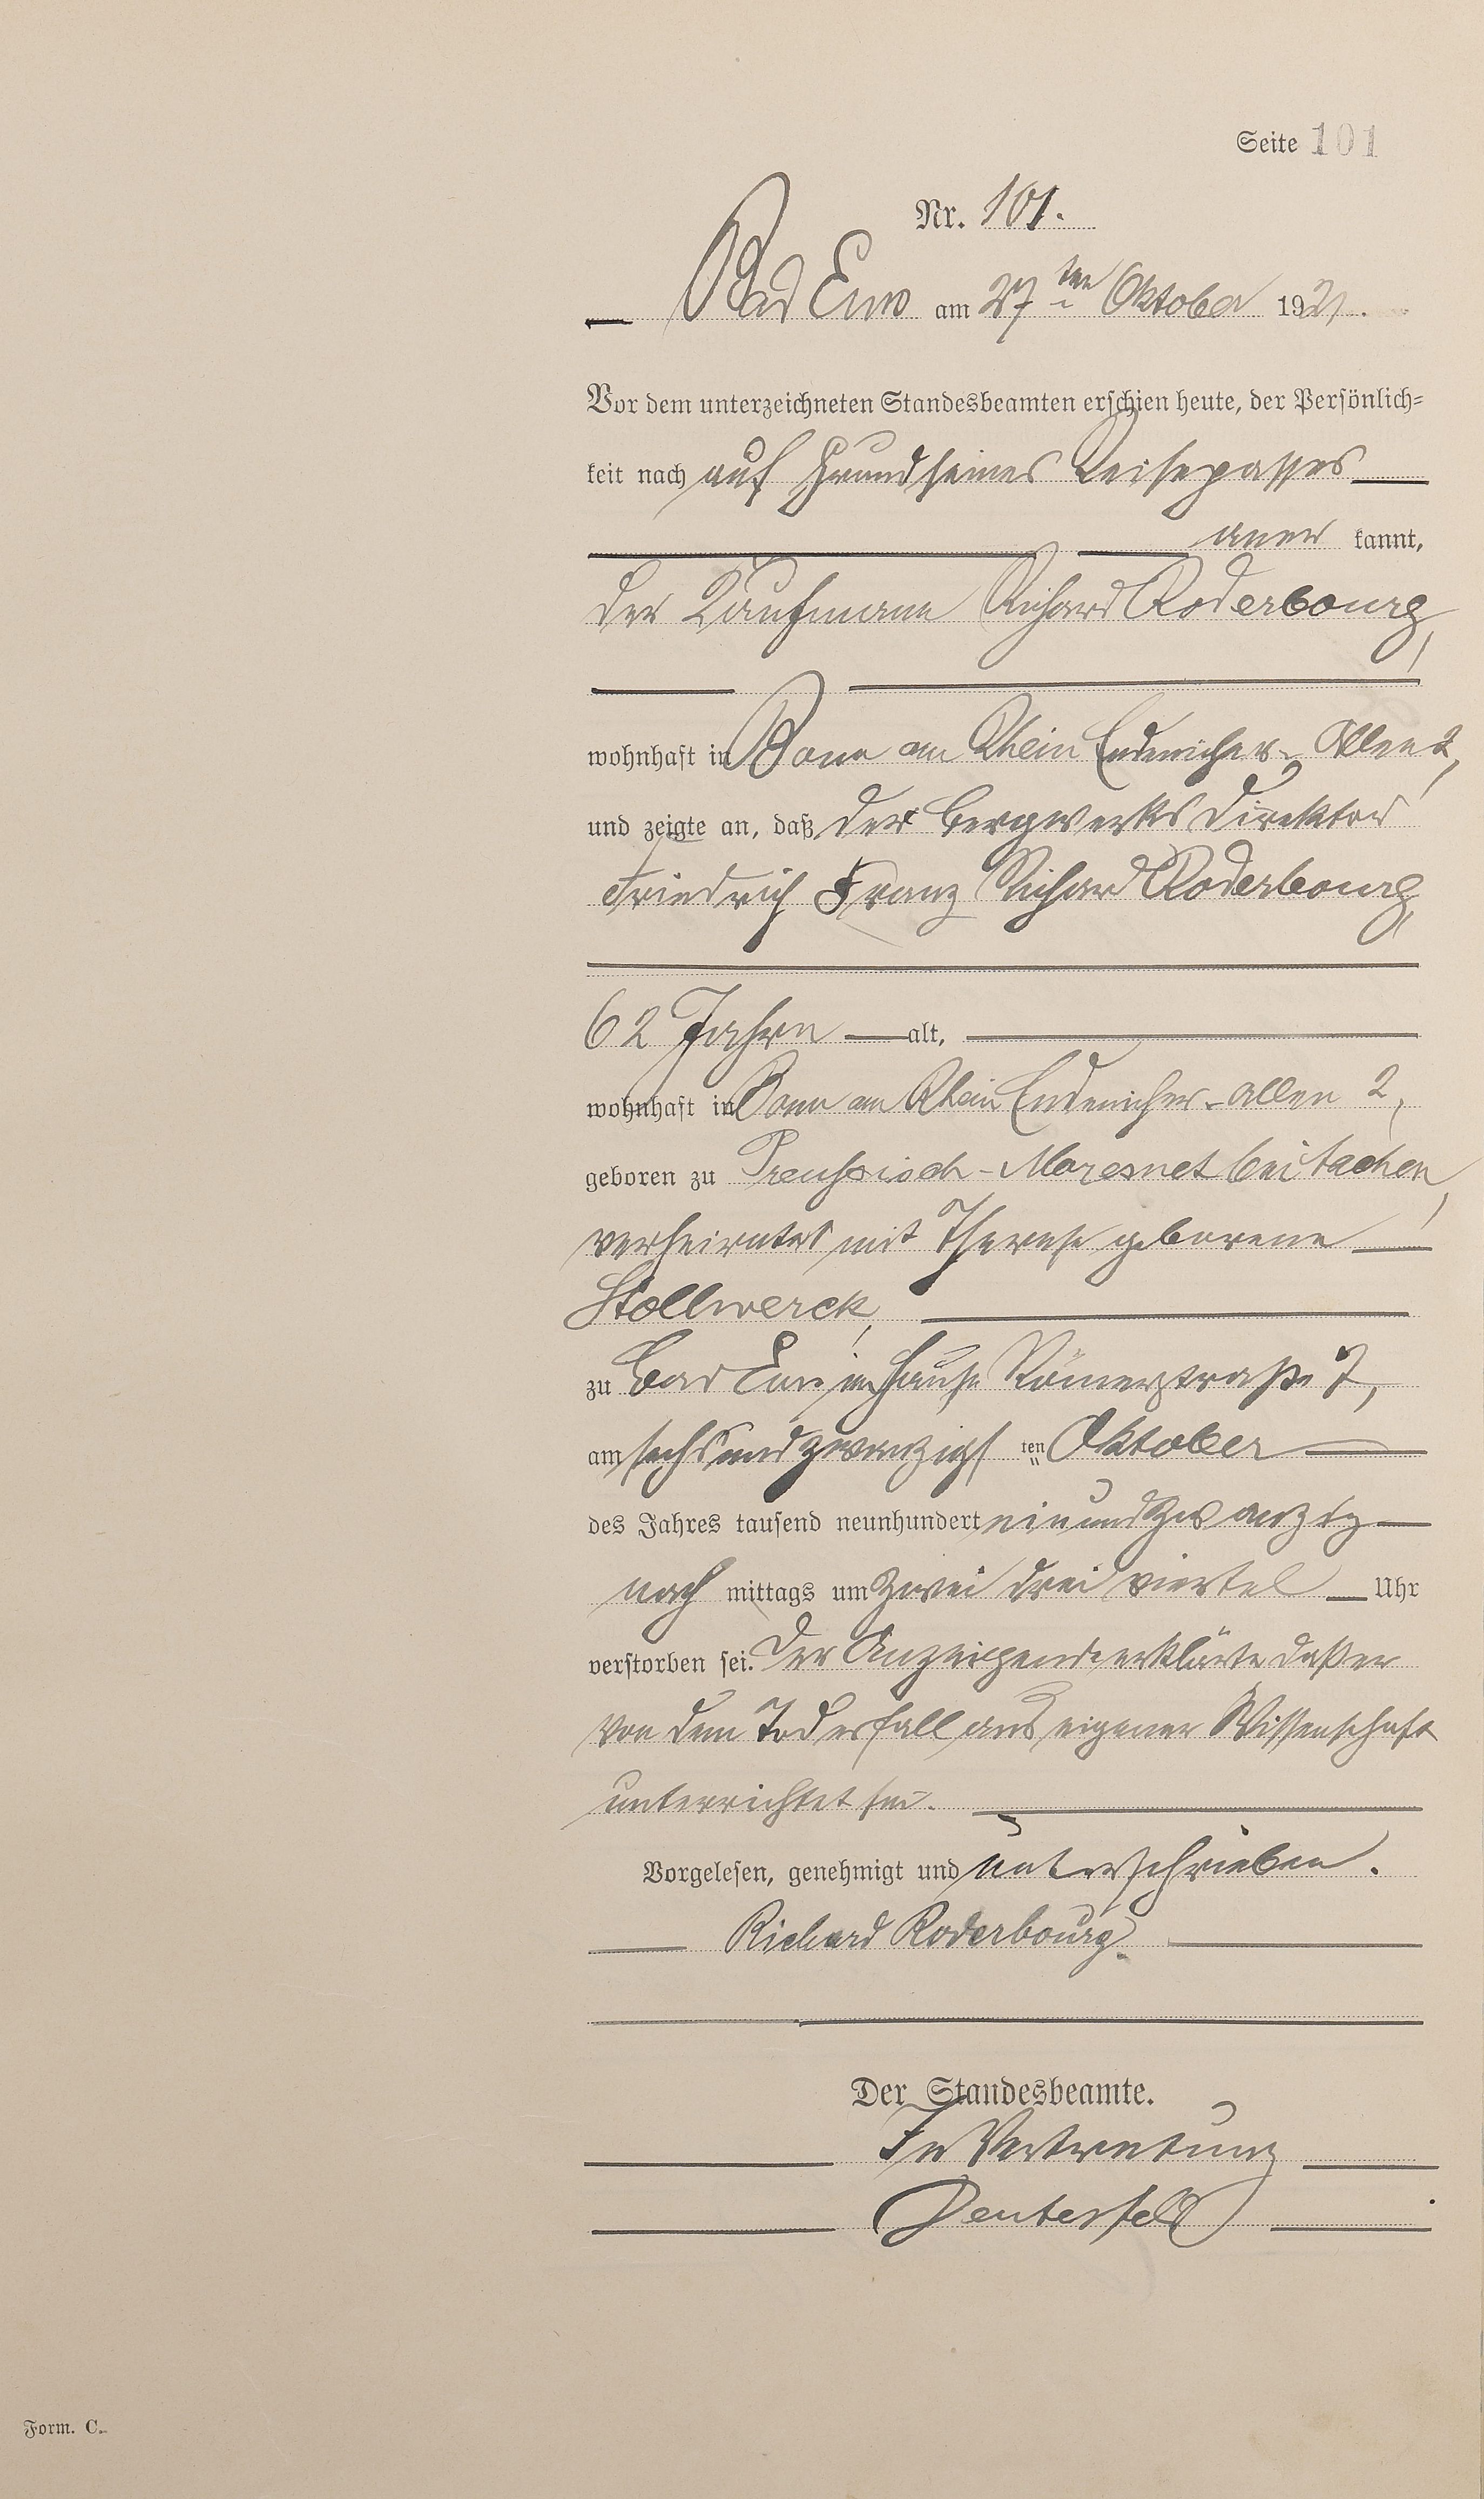 Seite 101
Nr. 101.
Bad Ems am 27ten Oktober 1921.
Vor dem unterzeichneten Standesbeamten erschien heute, der Persönlich-
keit nach auf Grund seines Reisepasses
aner kannt,
der Kaufmann Richard Roderbourg,
wohnhaft in Bonn am Rhein Endenicher-Allee 2,
und zeigte an, daß der Bergwerks Direktor
Friedrich Franz Richard Roderbourg,
62 Jahre alt,
wohnhaft in Bonn am Rhein Endenicher-Allee 2,
geboren zu Preußisch-Moresnet bei Aachen,
verheiratet mit Therese geborene
Stollwerck,
zu Bad Ems im Hause Römerstraße 7,
am sechsundzwanzigs ten Oktober
des Jahres tausend neunhundert einundzwanzig
nach mittags um zwei drei viertel Uhr
verstorben sei. Der Anzeigende erklärte daß er
von dem Todesfall aus eigener Wissenschaft
unterrichtet sei.
Vorgelesen, genehmigt und unterschrieben.
Richard Roderbourg.
Der Standesbeamte.
In Vertretung
Form. C.